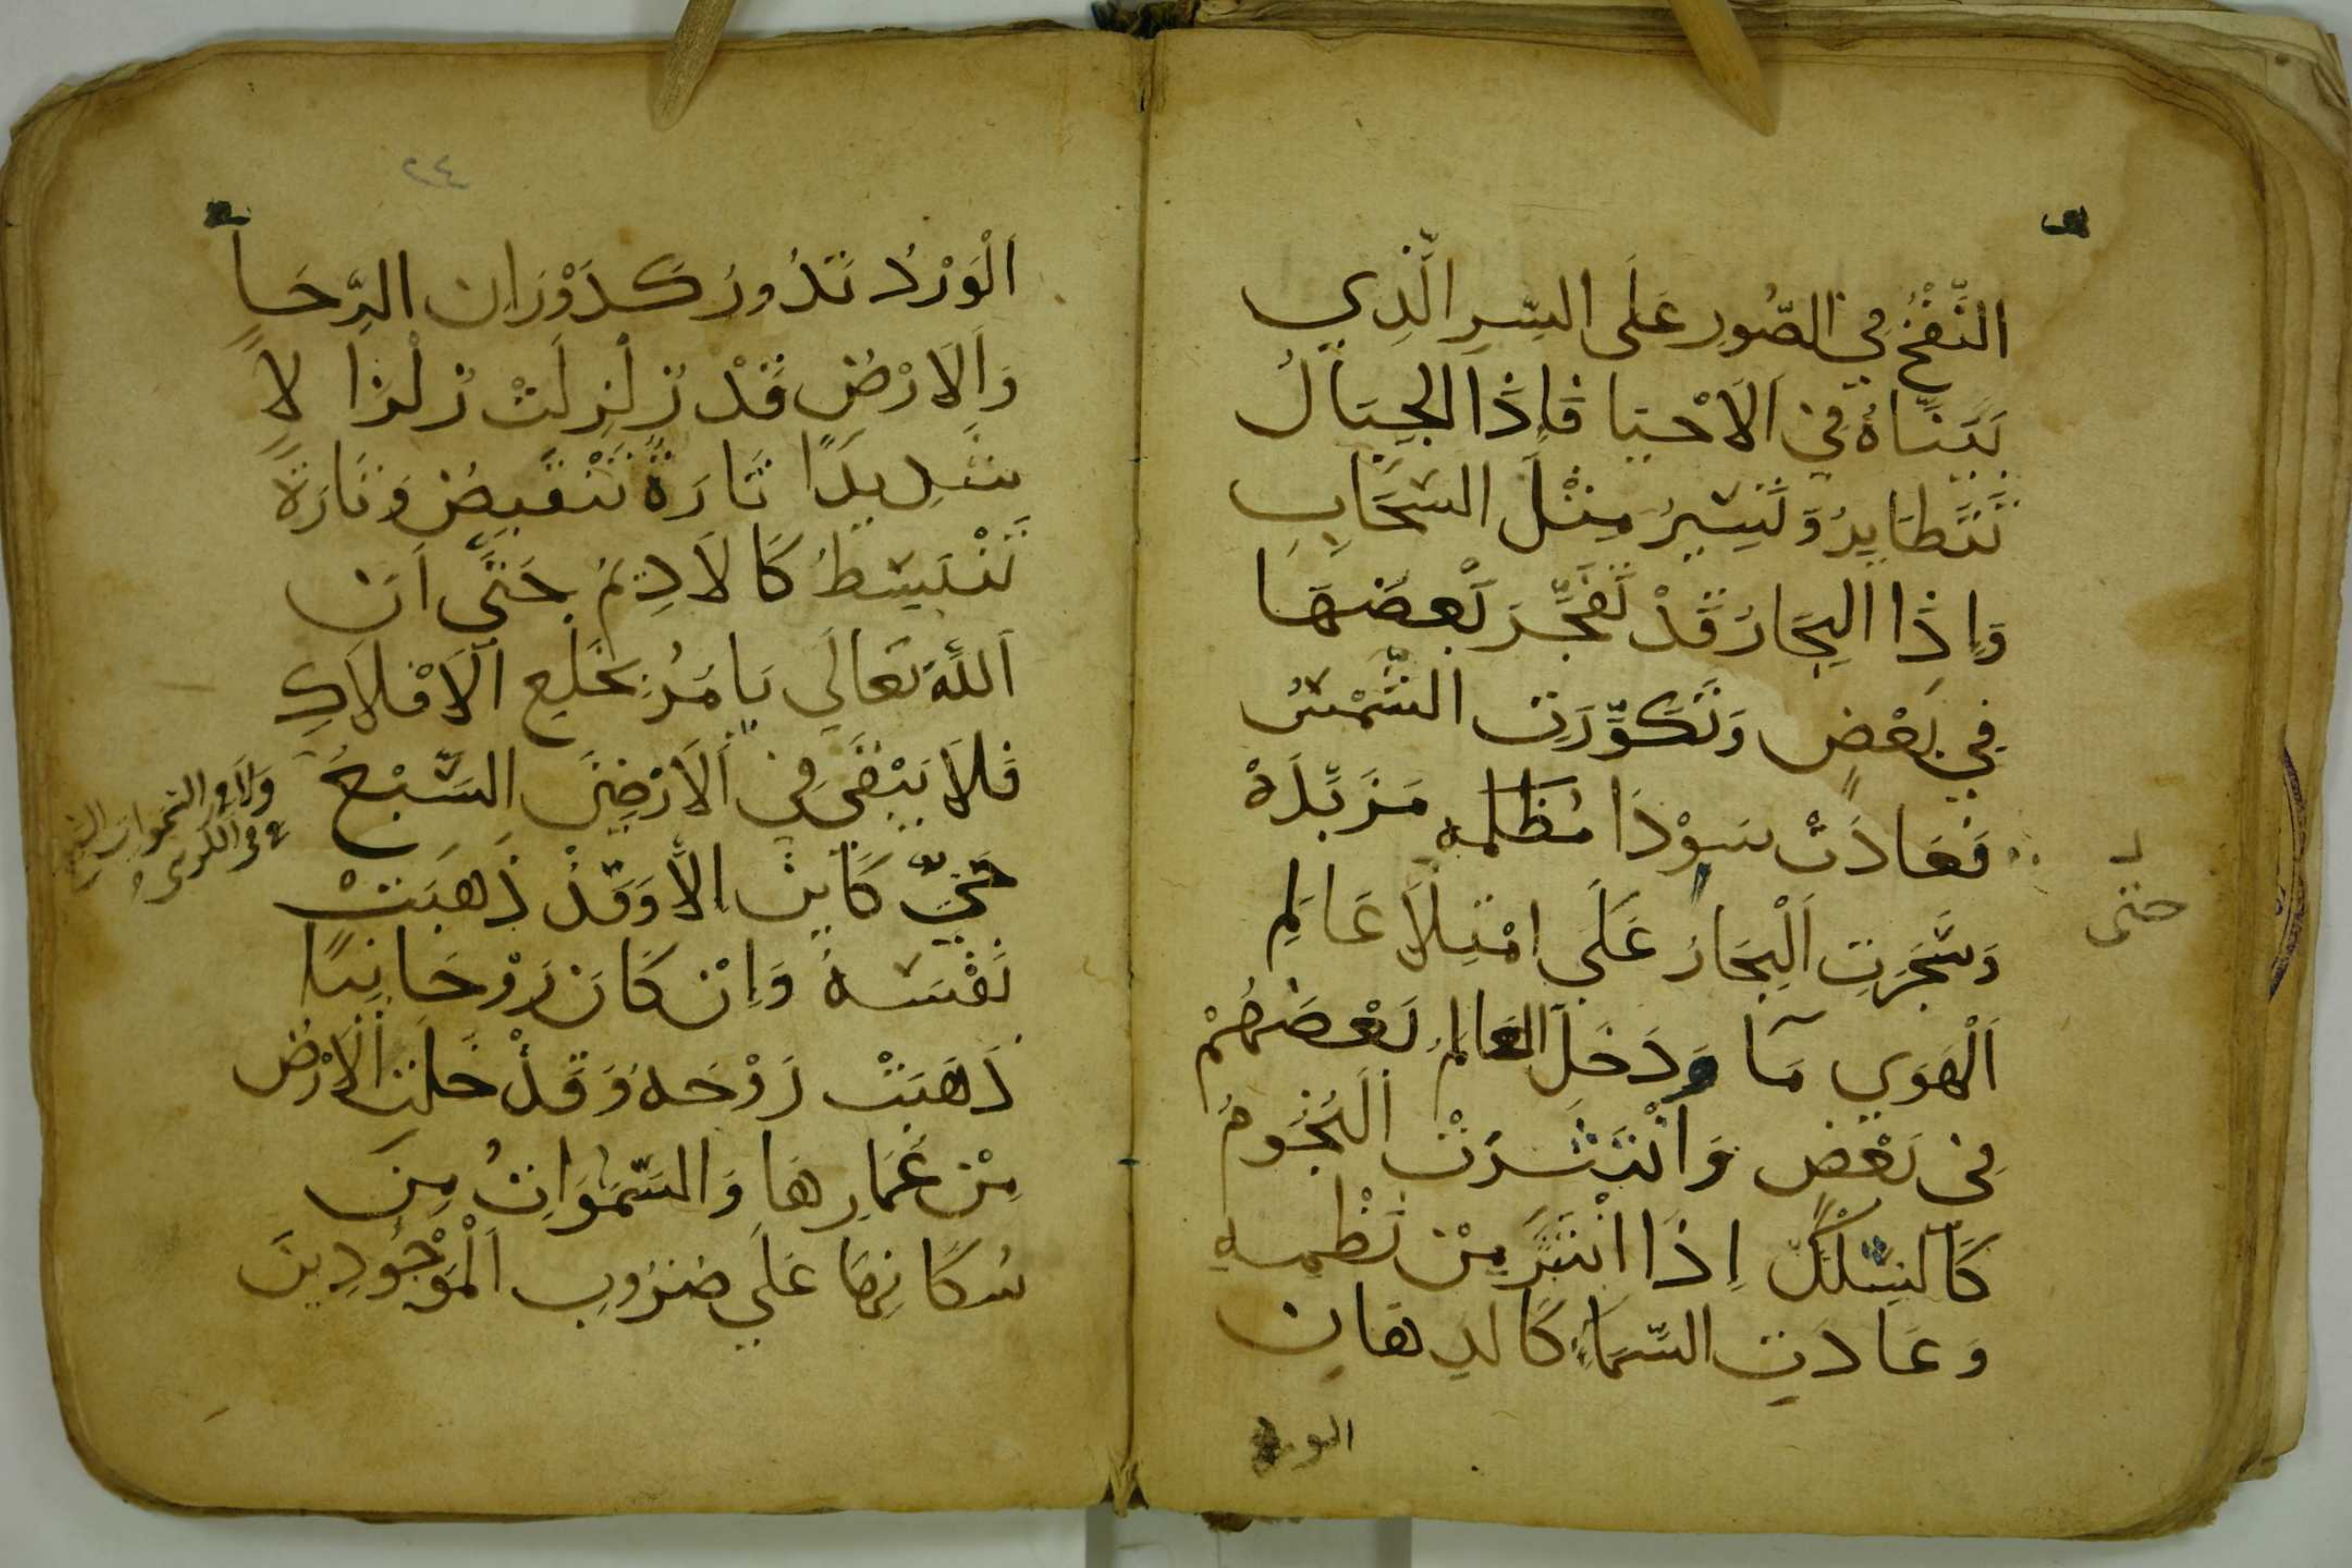 النَّفْخُ فِي الصُّورِ عَلَى السِّرِ الَّذِي
بَيَّنَّاهُ فِي الَاحْيَا فَاِذَا الجِبَالُ
تَتَطَايرُ وَتَسِيرُ مِثْلَ السَّحَابِ
وَاِذَا البِحَارُ قَدْ تَفَجَّرَ بَعضَهَا
فِي بَعْضٍ وَتَكَوَّرَتِ الشَّمْسُ
فَعَادَتْ سَوْدَا مُظلمه مَزَبِّدَةْ
وَسُجِّرَتِ اَلْبِحَارُ عَلَي امْتِلَا عَالَمِ
حتى
اَلْهَوَي مَا وَدَخَلَ العَالمُ بَعْضَهُمْ
فِي بَعْضٍ وَانْتَثَرَتْ النُّجُومُ
كَالسِّلْكِ اِذَا انْتَثَرَ مِنْ نَظْمِهِ
وَعَادَتِ السَّمَاءُ كَالدِهَانِ
الورد
٢٤
اَلْوَرْدُ تَدُورُ كَدَوْرَانِ الرِّحَا
وَالَارْضُ قَدْ زُلْزِلَتْ زُلْزَالًا
شَدِيدًا تَارَةً تَنْقَبِضُ وَتَارَةً
تَنْبَسِطُ كَالَادِيمُ حَتَّي اَنَ
اَللَّهَ تَعَالَي يَامَرُ بِخَلْعِ الَافْلَاكِ
فَلَا يَبْقَي فِي اَلَارْضِينَ السَّبْعُ
وَلَا فِي السَّمَوَاتِ
حَيٌّ كَايِنٌ اِلَّا وَقَدْ ذَهَبَتْ
نَفْسَهُ وَاِنْ كَانَ رَوْحَانِيًا
ذَهَبَتْ رَوْحَهُ وَقَدْ خَلَتِ الَارْضُ
مِنْ عَمَارِهَا وَالسَّمَوَاتُ مِنَ
سُكَّانِهَا عَلَي ضَرُوبِ اَلْمَوْجُودِينَ